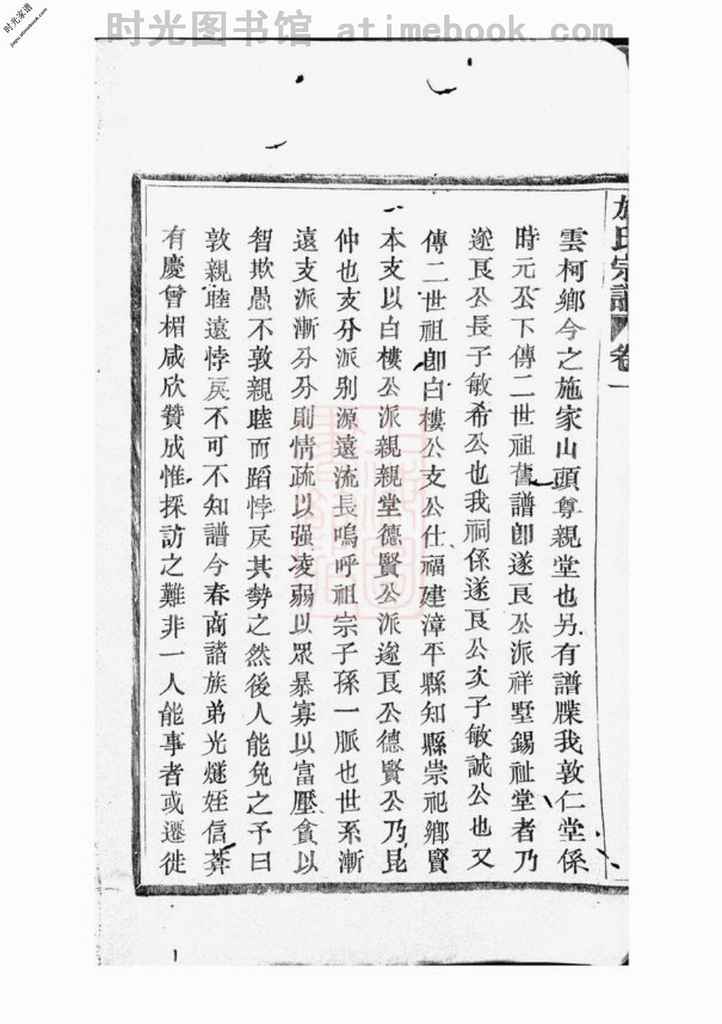 时光图书馆 atimebook.com
时光家谱
施氏宗譜 卷一
雲柯鄉今之施家山頭尊親堂也另有譜牒我敦仁堂係
時元公下傳二世祖舊譜卽遂良公派祥墅錫祉堂者乃
遂良公長子敏希公也我祠係遂良公次子敏誠公也又
傳二世祖卽白樓公支公仕福建漳平縣知縣崇祀鄉賢
本支以白樓公派親親堂德賢公派遂良公德賢公乃昆
仲也支分派别源遠流長嗚呼祖宗子孫一脈也世系漸
遠支派漸分分則情疏以强凌弱以眾暴寡以富壓貧以
智欺愚不敦親睦而蹈悖戾其勢之然後人能免之予曰
敦親睦遠悖戾不可不知譜今春商諸族弟光燧姪信莽
有慶曾楣咸欣贊成惟採訪之難非一人能事者或遷徙